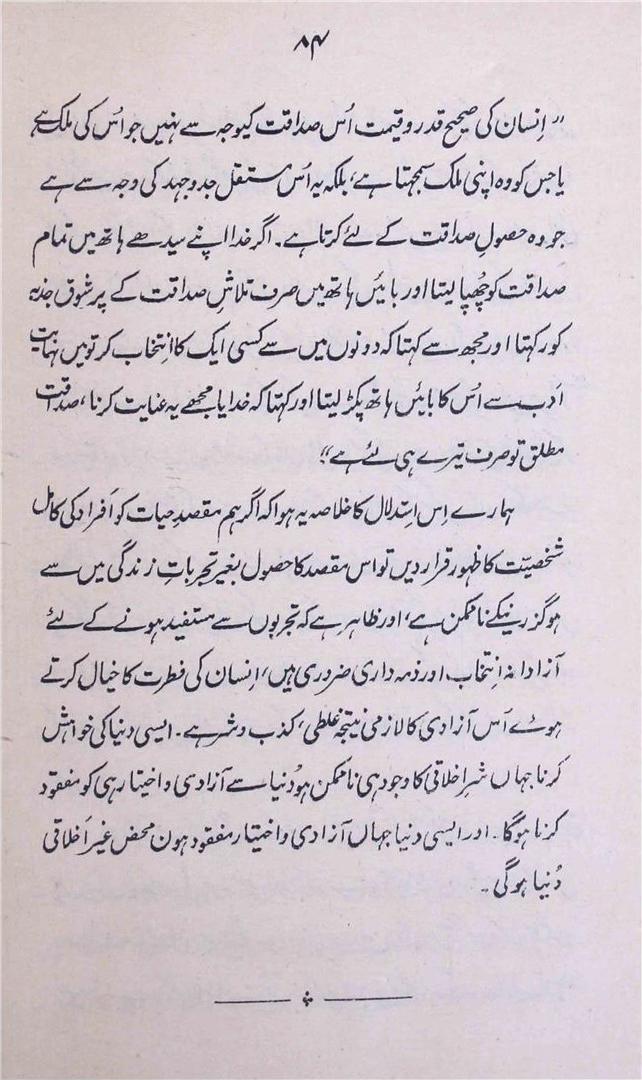 ۸۴
" اِنسان کی صحیح قدر و قیمت اُس صداقت کیوجہ سے نہیں جو اُس کی ملک ہے
یا جس کو وہ اپنی ملک سمجہتا ہے، بلکہ یہ اُس مستقل جدوجہد کی وجہ سے ہے
جو وہ حصولِ صداقت کے لئے کرتا ہے۔ اگر خدا اپنے سیدھے ہاتھ میں تمام
صداقت کو چُھپا لیتا اور بائیں ہاتھ میں صرف تلاشِ صداقت کے پرشوق جذبہ
کو رکہتا اور مجھ سے کہتا کہ دونوں میں سے کسی ایک کا اِنتخاب کر تو میں نہایت
اَدب سے اُس کا بائیں ہاتھ پکڑ لیتا اور کہتا کہ خدایا مجھے یہ عنایت کرنا، صداقت
مطلق تو صرف تیرے ہی لئے ہے"
ہمارے اِس اِستدلال کا خلاصہ یہ ہوا کہ اگر ہم مقصدِ حیات کو اَفراد کی کامل
شخصیّت کا ظہور قرار دیں تو اس مقصد کا حصول بغیر تجرباتِ زندگی میں سے
ہو گزرنیکے ناممکن ہے، اور ظاہر ہے کہ تجربوں سے مستفید ہونے کے لئے
آزادانہ اِنتخاب اور ذمہ داری ضروری ہیں، اِنسان کی فطرت کا خیال کرتے
ہوئے اُس آزادی کا لازمی نیتجہ غلطی، کذب و شر ہے۔ ایسی دنیا کی خواہش
کرنا جہاں شر اخلاقی کا وجود ہی ناممکن ہو دُنیا سے آزادی و اختیار ہی کو مفقود
کرنا ہوگا۔ اور ایسی دنیا جہاں آزادی و اختیار مفقود ہوں محض غیر اَخلاقی
دُنیا ہوگی۔